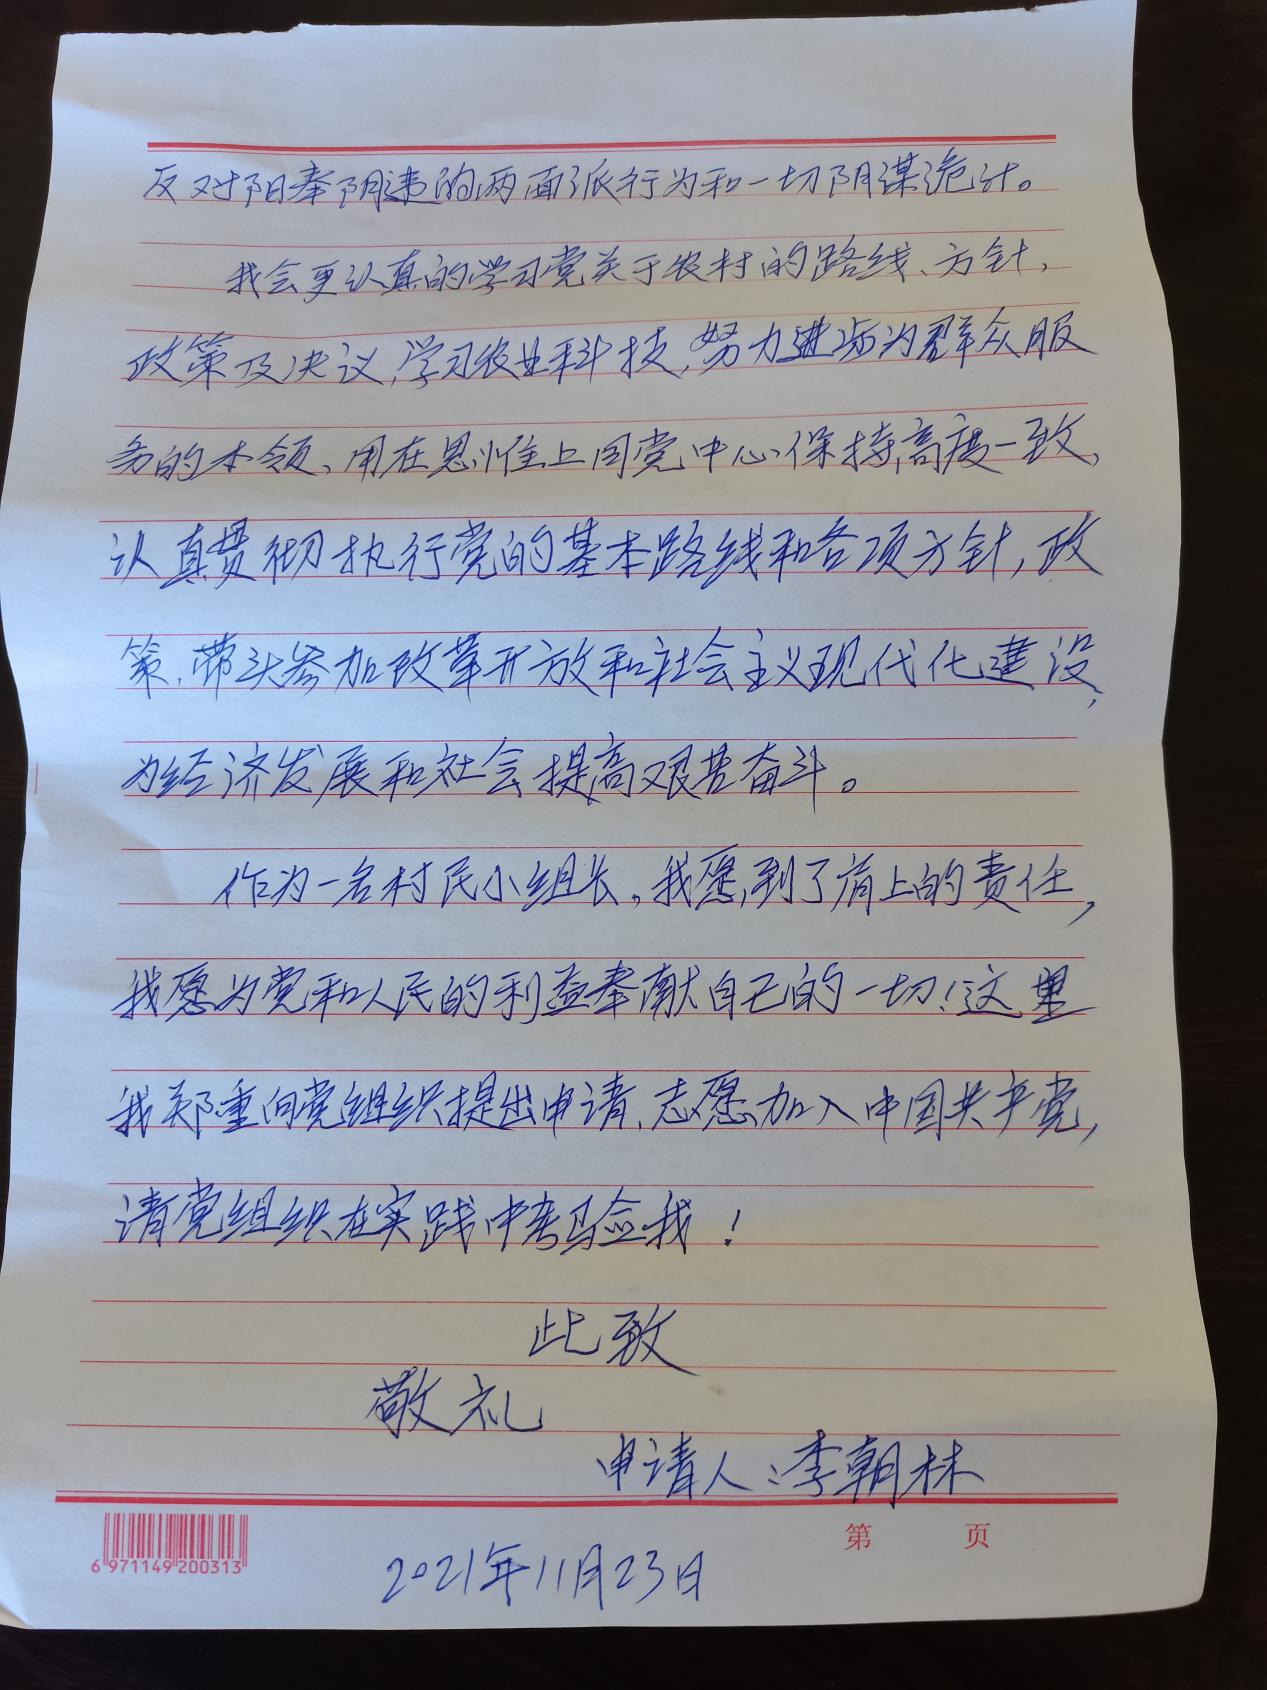 反对阳奉阴违的两面派行为和一切阴谋诡计。
我会更认真的学习党关于农村的路线、方针，
政策及决议，学习农业科技，努力进步为群众服
务的本领、用在思惟上同党中心保持高度一致，
认真贯彻执行党的基本路线和各项方针，政
策，带头参加改革开放和社会主义现代化建设，
为经济发展和社会提高艰苦奋斗。
作为一名村民小组长，我愿到了肩上的责任，
我愿为党和人民的利益奉献自己的一切！这里
我郑重向党组织提出申请，志愿加入中国共产党，
请党组织在实践中考验我！
此致
敬礼
申请人：李朝林
第 页
6 971149 200313
2021年11月23日